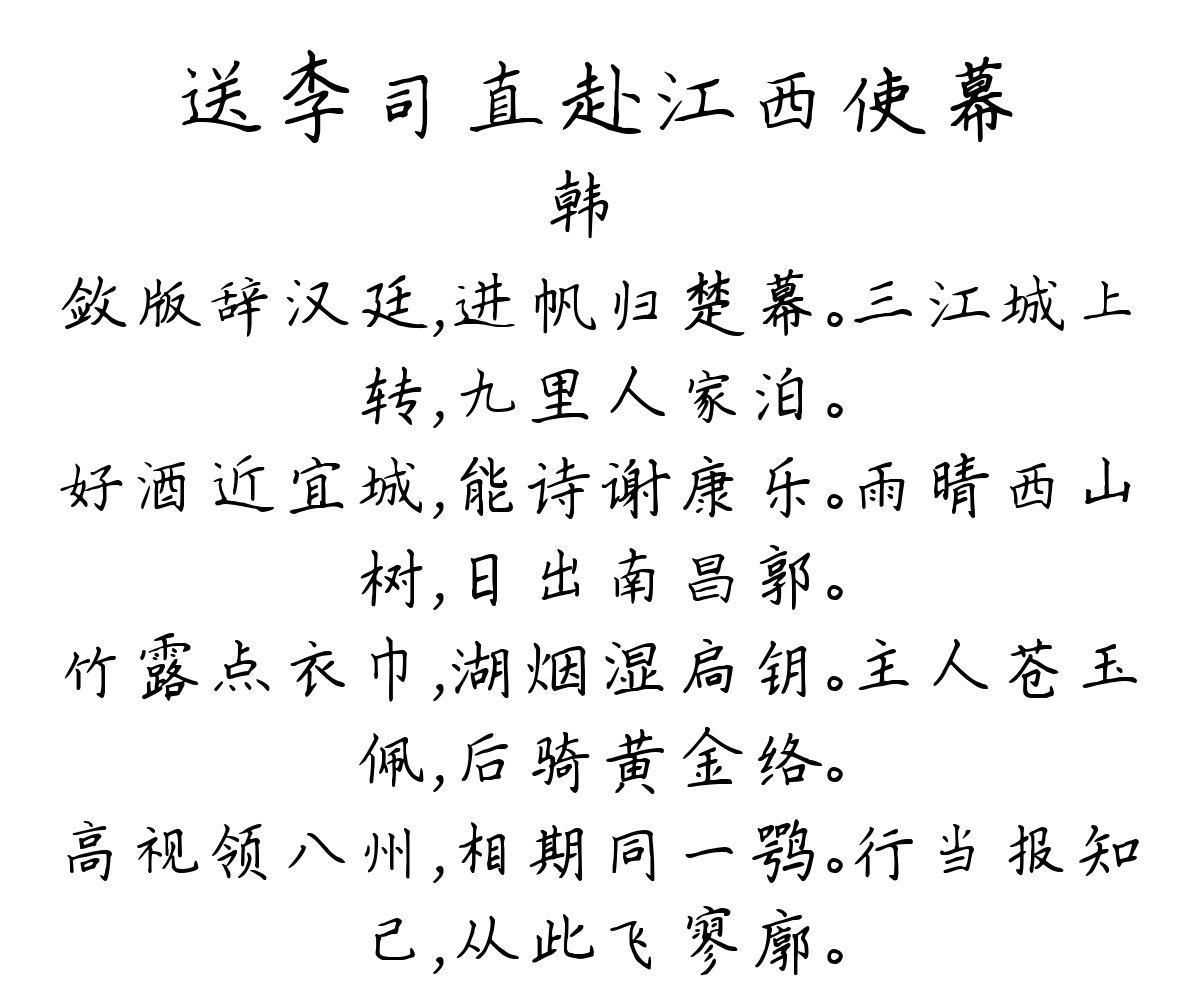 送李司直赴江西使幕
韩
敛版辞汉廷,进帆归楚幕。三江城上
转,九里人家泊。
好酒近宜城,能诗谢康乐。雨晴西山
树,日出南昌郭。
竹露点衣巾,湖烟湿扃钥。主人苍玉
佩,后骑黄金络。
高视领八州,相期同一鹗。行当报知
己,从此飞寥廓。